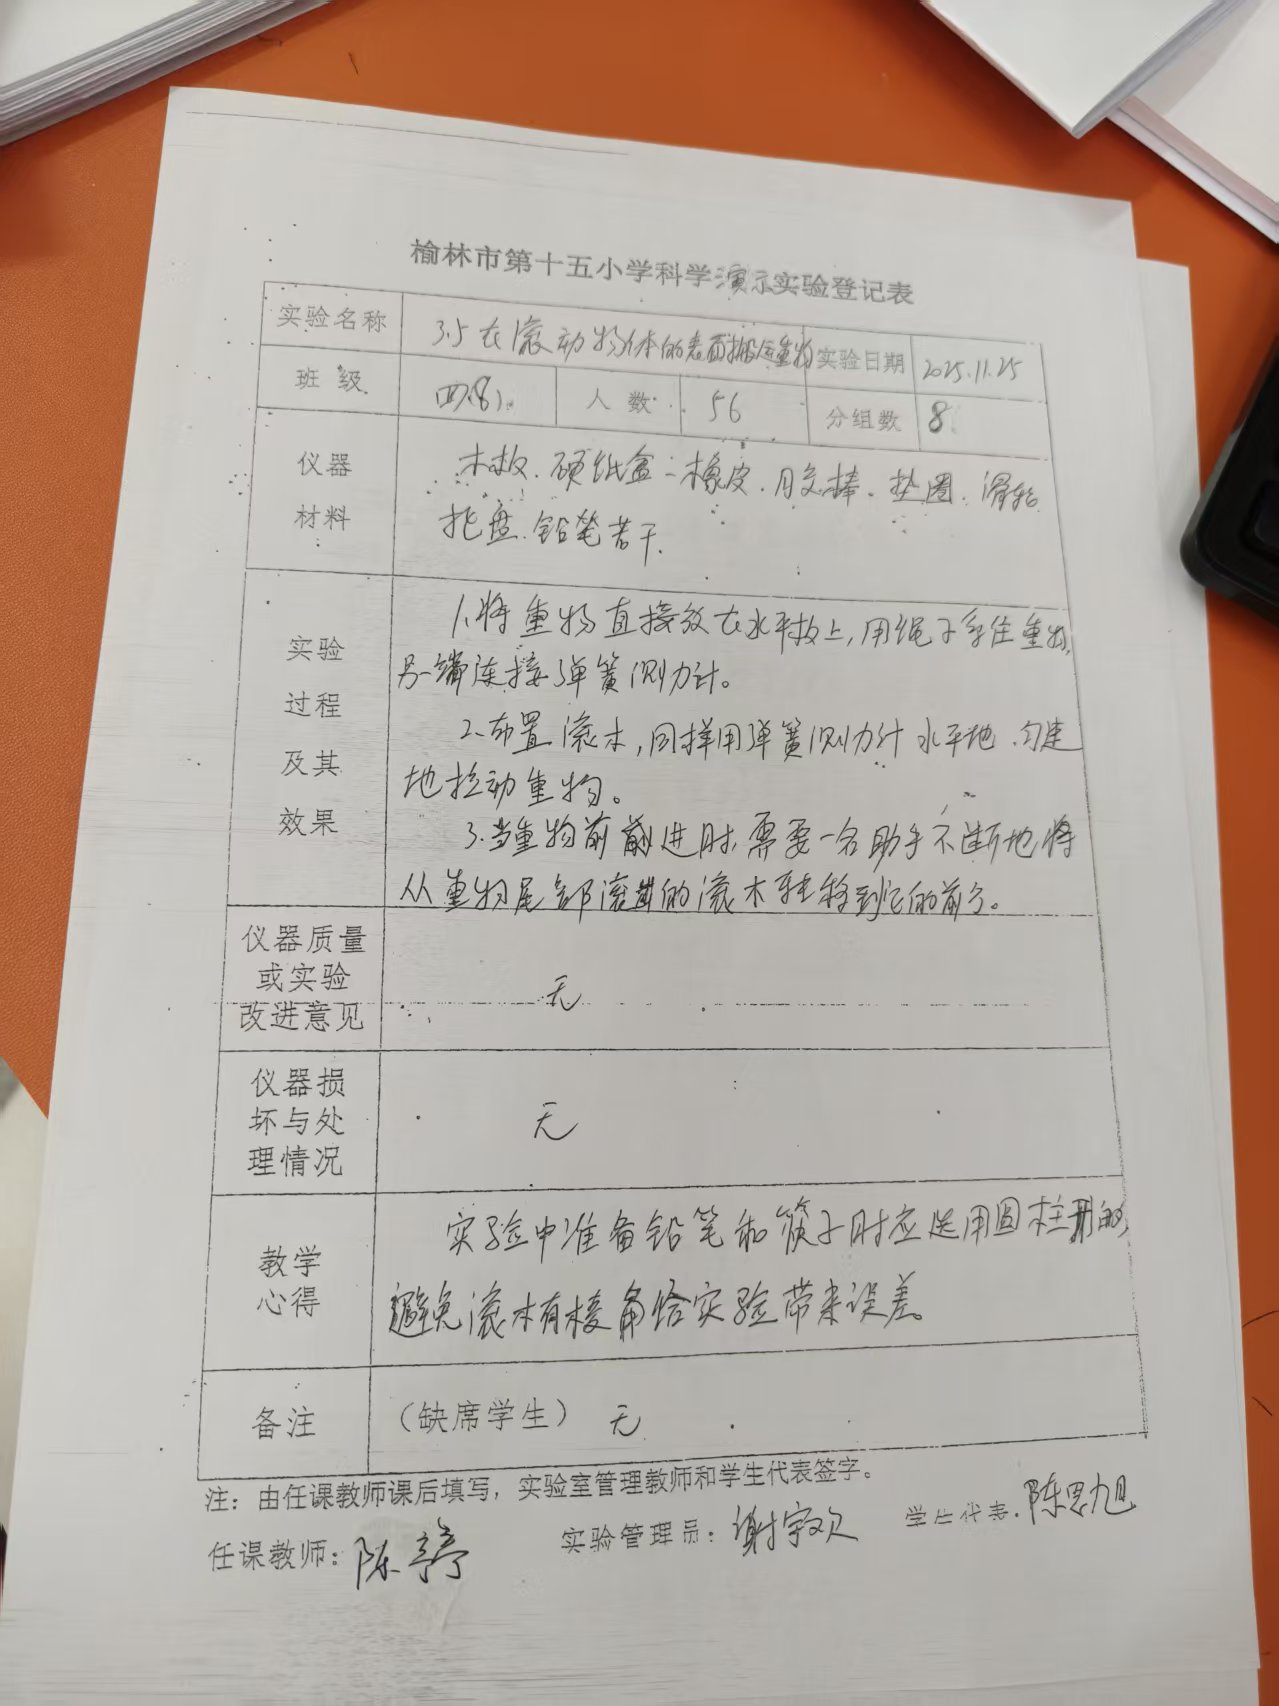 榆林市第十五小学科学演示实验登记表
实验名称 3.5在滚动物体的表面搬运重物 实验日期 2025.11.25
班级 四(8) 人数 56 分组数 8
仪器材料 木板、硬纸盒、橡皮、胶棒、垫圈、滑轮
托盘、铅笔若干.
实验过程及其效果 1.将重物直接放在水平板上,用绳子系住重物,
另一端连接弹簧测力计。
2.布置滚木,同样用弹簧测力计水平地、匀速
地拉动重物。
3.当重物前前进时,需要一名助手不断地将
从重物尾部滚出的滚木转移到它的前方。
仪器质量
或实验
改进意见 无
仪器损
坏与处
理情况 无
教学心得 实验中准备铅笔和筷子时应选用圆柱形的,
避免滚木有棱角给实验带来误差。
备注 (缺席学生) 无
注:由任课教师课后填写,实验室管理教师和学生代表签字。
任课教师:陈婷 实验管理员:谢 学生代表:陈思旭